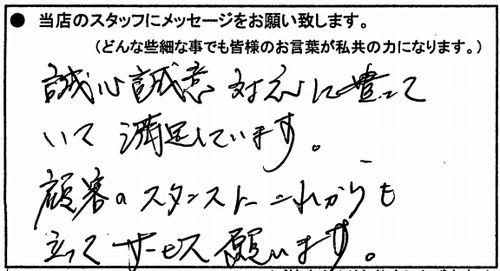 ● 当店のスタッフにメッセージをお願い致します。
(どんな些細な事でも皆様のお言葉が私共の力になります。)
誠心誠意 対応に豊って
いて 満足しています。
顧客のスタンスに これからも
立って サービス願います。